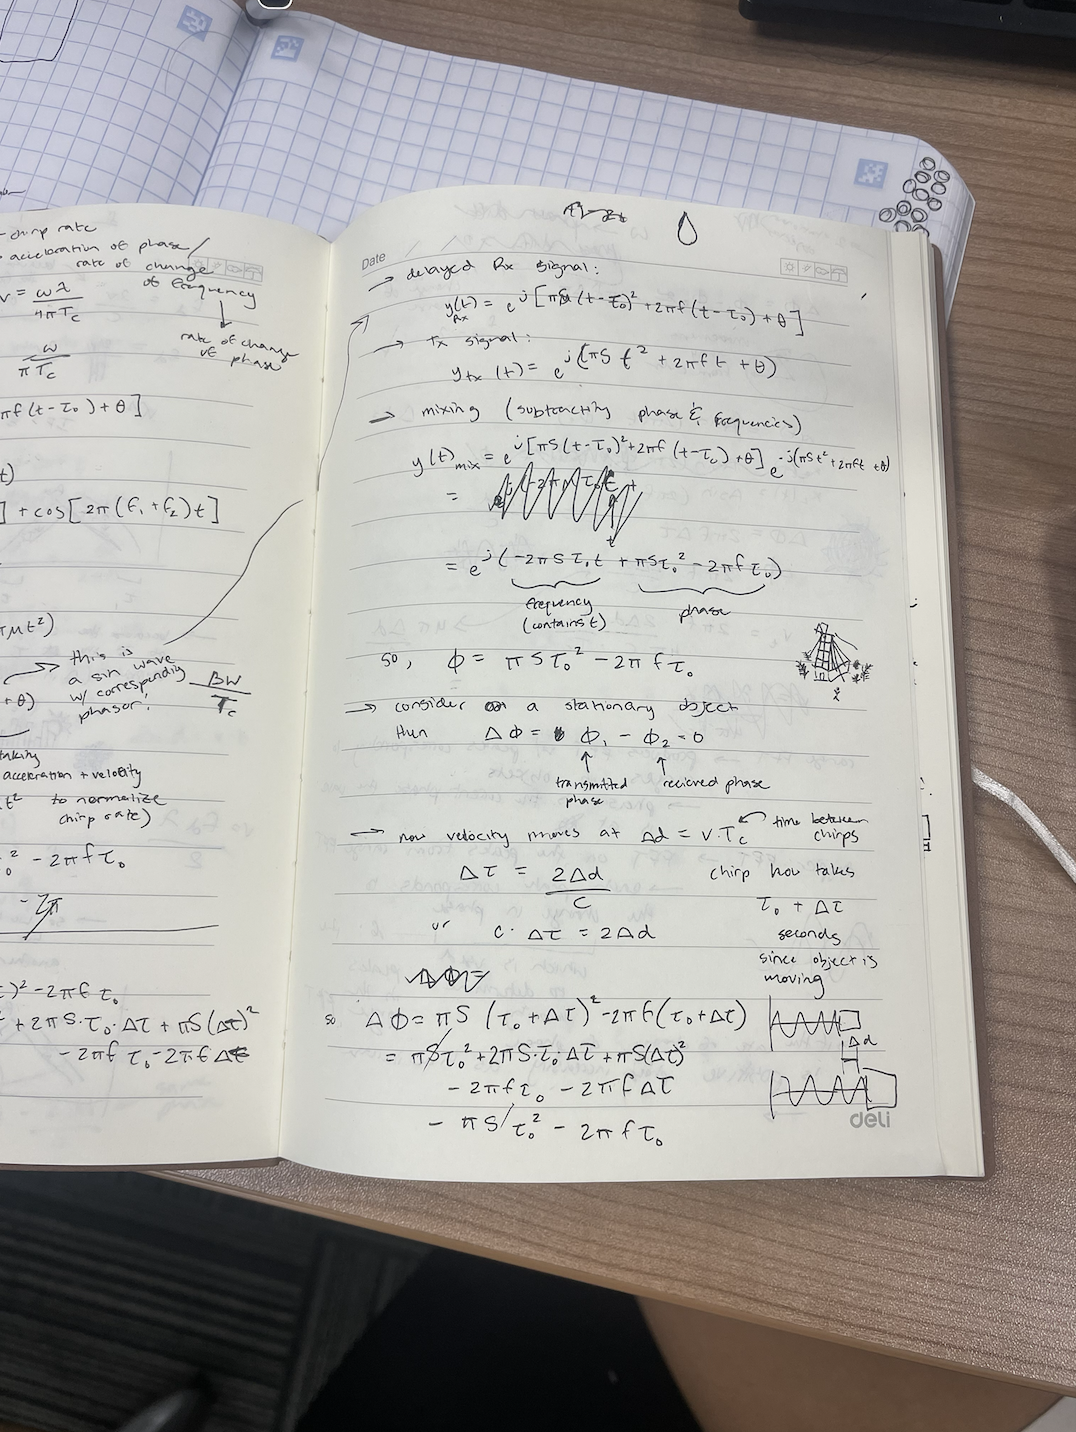 chirp rate
acceleration of phase/
rate of change
of frequency
rate of change
of phase
v = ωλ / 4πTc
ω / πTc
πf(t-τ₀)+θ]
t)
] + cos[2π(f₁+f₂)t]
πμt²)
this is
a sin wave
w/ corresponding
phasor!
+θ)
BW / Tc
taking
acceleration + velocity
t² to normalize
chirp rate)
₀² - 2πfτ₀
-2π
t)² - 2πfτ₀
+ 2πS·τ₀·Δτ + πS(Δτ)²
- 2πfτ₀ - 2πfΔτ
Date
→ delayed Rx signal:
y(t)Rx = e^j[πS(t-τ₀)² + 2πf(t-τ₀)+θ]
→ Tx signal:
ytx(t) = e^j(πSt² + 2πft + θ)
→ mixing (subtracting phase & frequencies)
y(t)mix = e^j[πS(t-τ₀)²+2πf(t-τ₀)+θ] e^-j(πSt²+2πft+θ)
=
= e^j(-2πSτ₀t + πSτ₀² - 2πfτ₀)
frequency
(contains t)
phase
so, ϕ = πSτ₀² - 2πfτ₀
→ consider a stationary object
then Δϕ = ϕ₁ - ϕ₂ = 0
transmitted
phase
recieved phase
→ now velocity moves at Δd = vTc
time between
chirps
Δτ = 2Δd / c
or c·Δτ = 2Δd
chirp now takes
τ₀ + Δτ
seconds
since object is
moving
so Δϕ = πS(τ₀+Δτ)² - 2πf(τ₀+Δτ)
= πSτ₀² + 2πS·τ₀·Δτ + πS(Δτ)²
- 2πfτ₀ - 2πfΔτ
- πSτ₀² - 2πfτ₀
Δd
deli